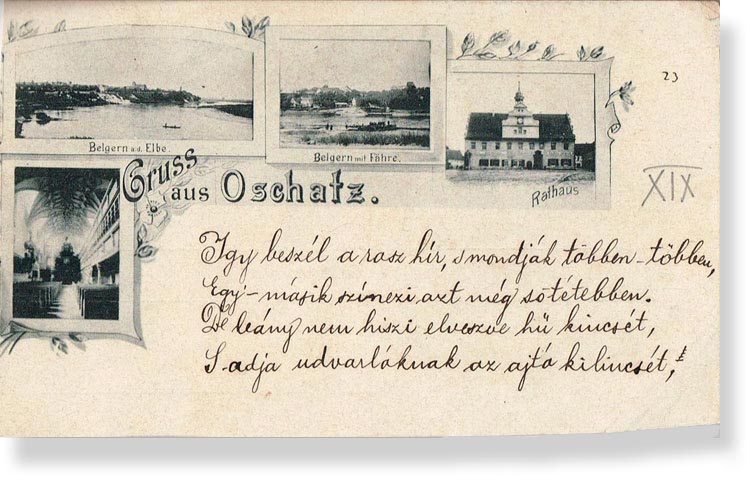 23
Belgern a.d. Elbe.
Belgern mit Fähre.
Rathaus
Gruss
aus Oschatz.
XIX
Igy beszél a rosz hír, s mondják többen-többen,
Egy-másik színezi azt még sötétebben.
De leány nem hiszi elveszve hü kincsét,
S adja udvarlóknak az ajtó kilincsét,